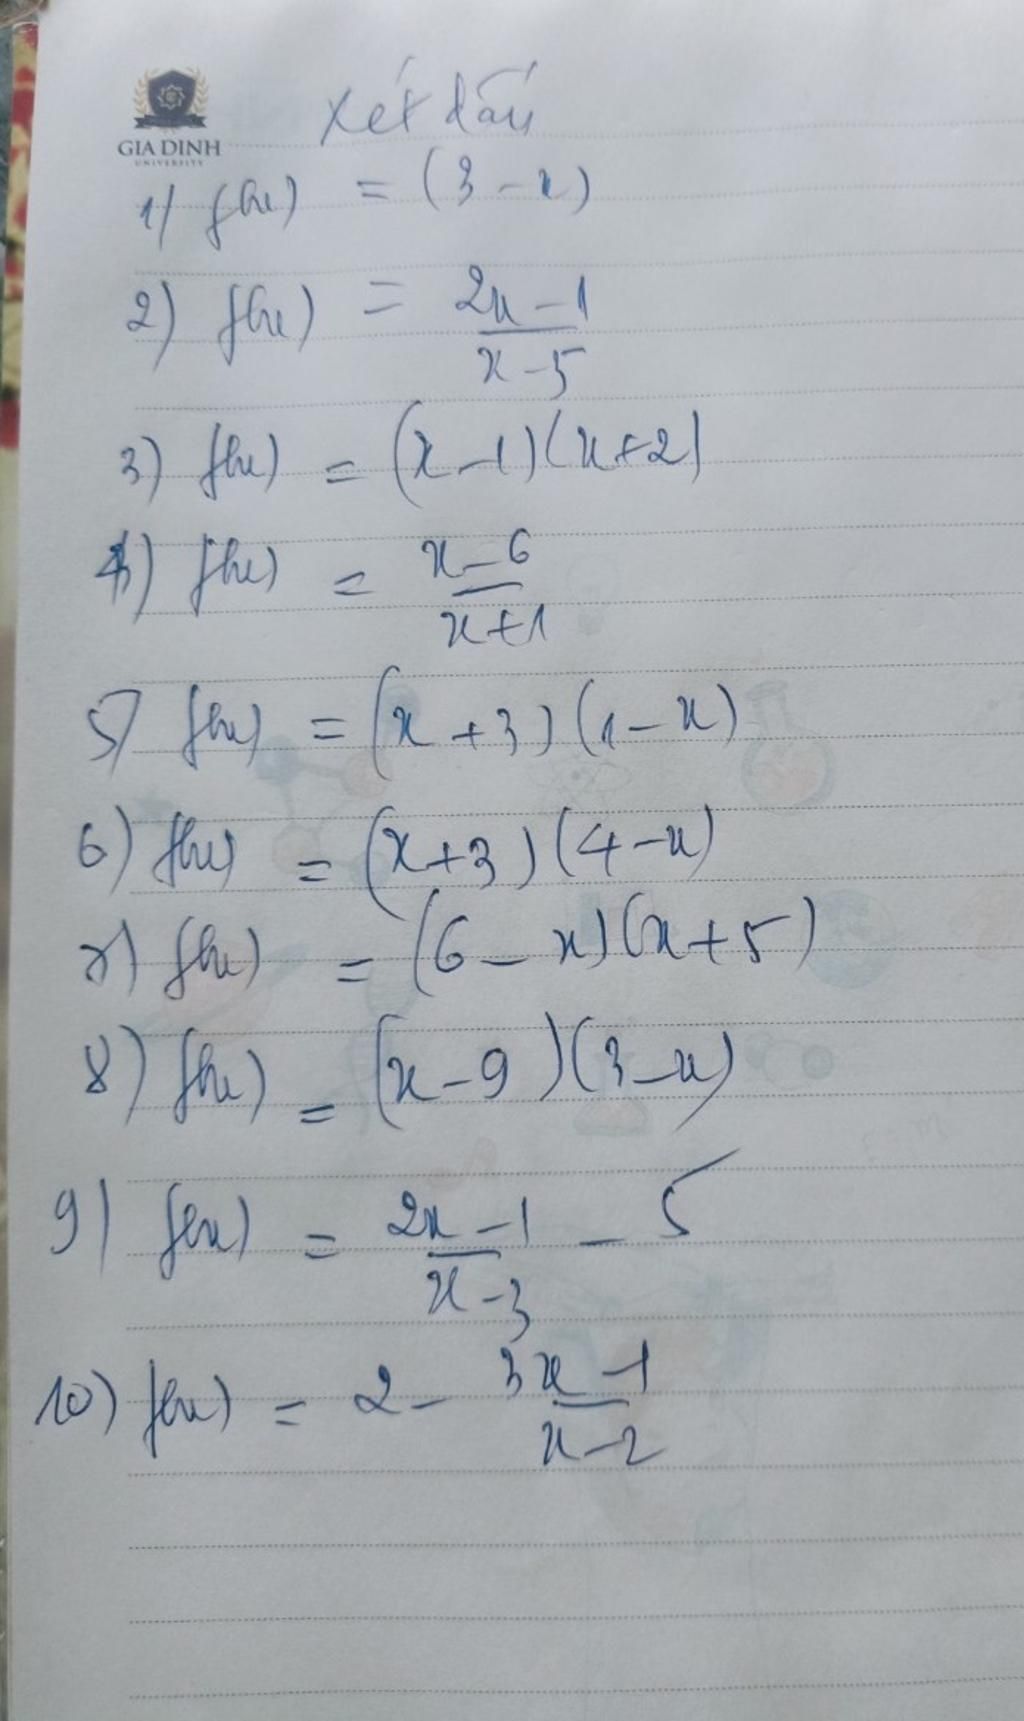 GIA DINH
UNIVERSITY
xét dấu
1) f(x) = (3 - x)
2) f(x) = \frac{2x - 1}{x - 5}
3) f(x) = (x - 1)(x + 2)
4) f(x) = \frac{x - 6}{x + 1}
5) f(x) = (x + 3)(1 - x)
6) f(x) = (x + 3)(4 - x)
7) f(x) = (6 - x)(x + 5)
8) f(x) = (x - 9)(3 - x)
9) f(x) = \frac{2x - 1}{x - 3} - 5
10) f(x) = 2 - \frac{3x - 1}{x - 2}